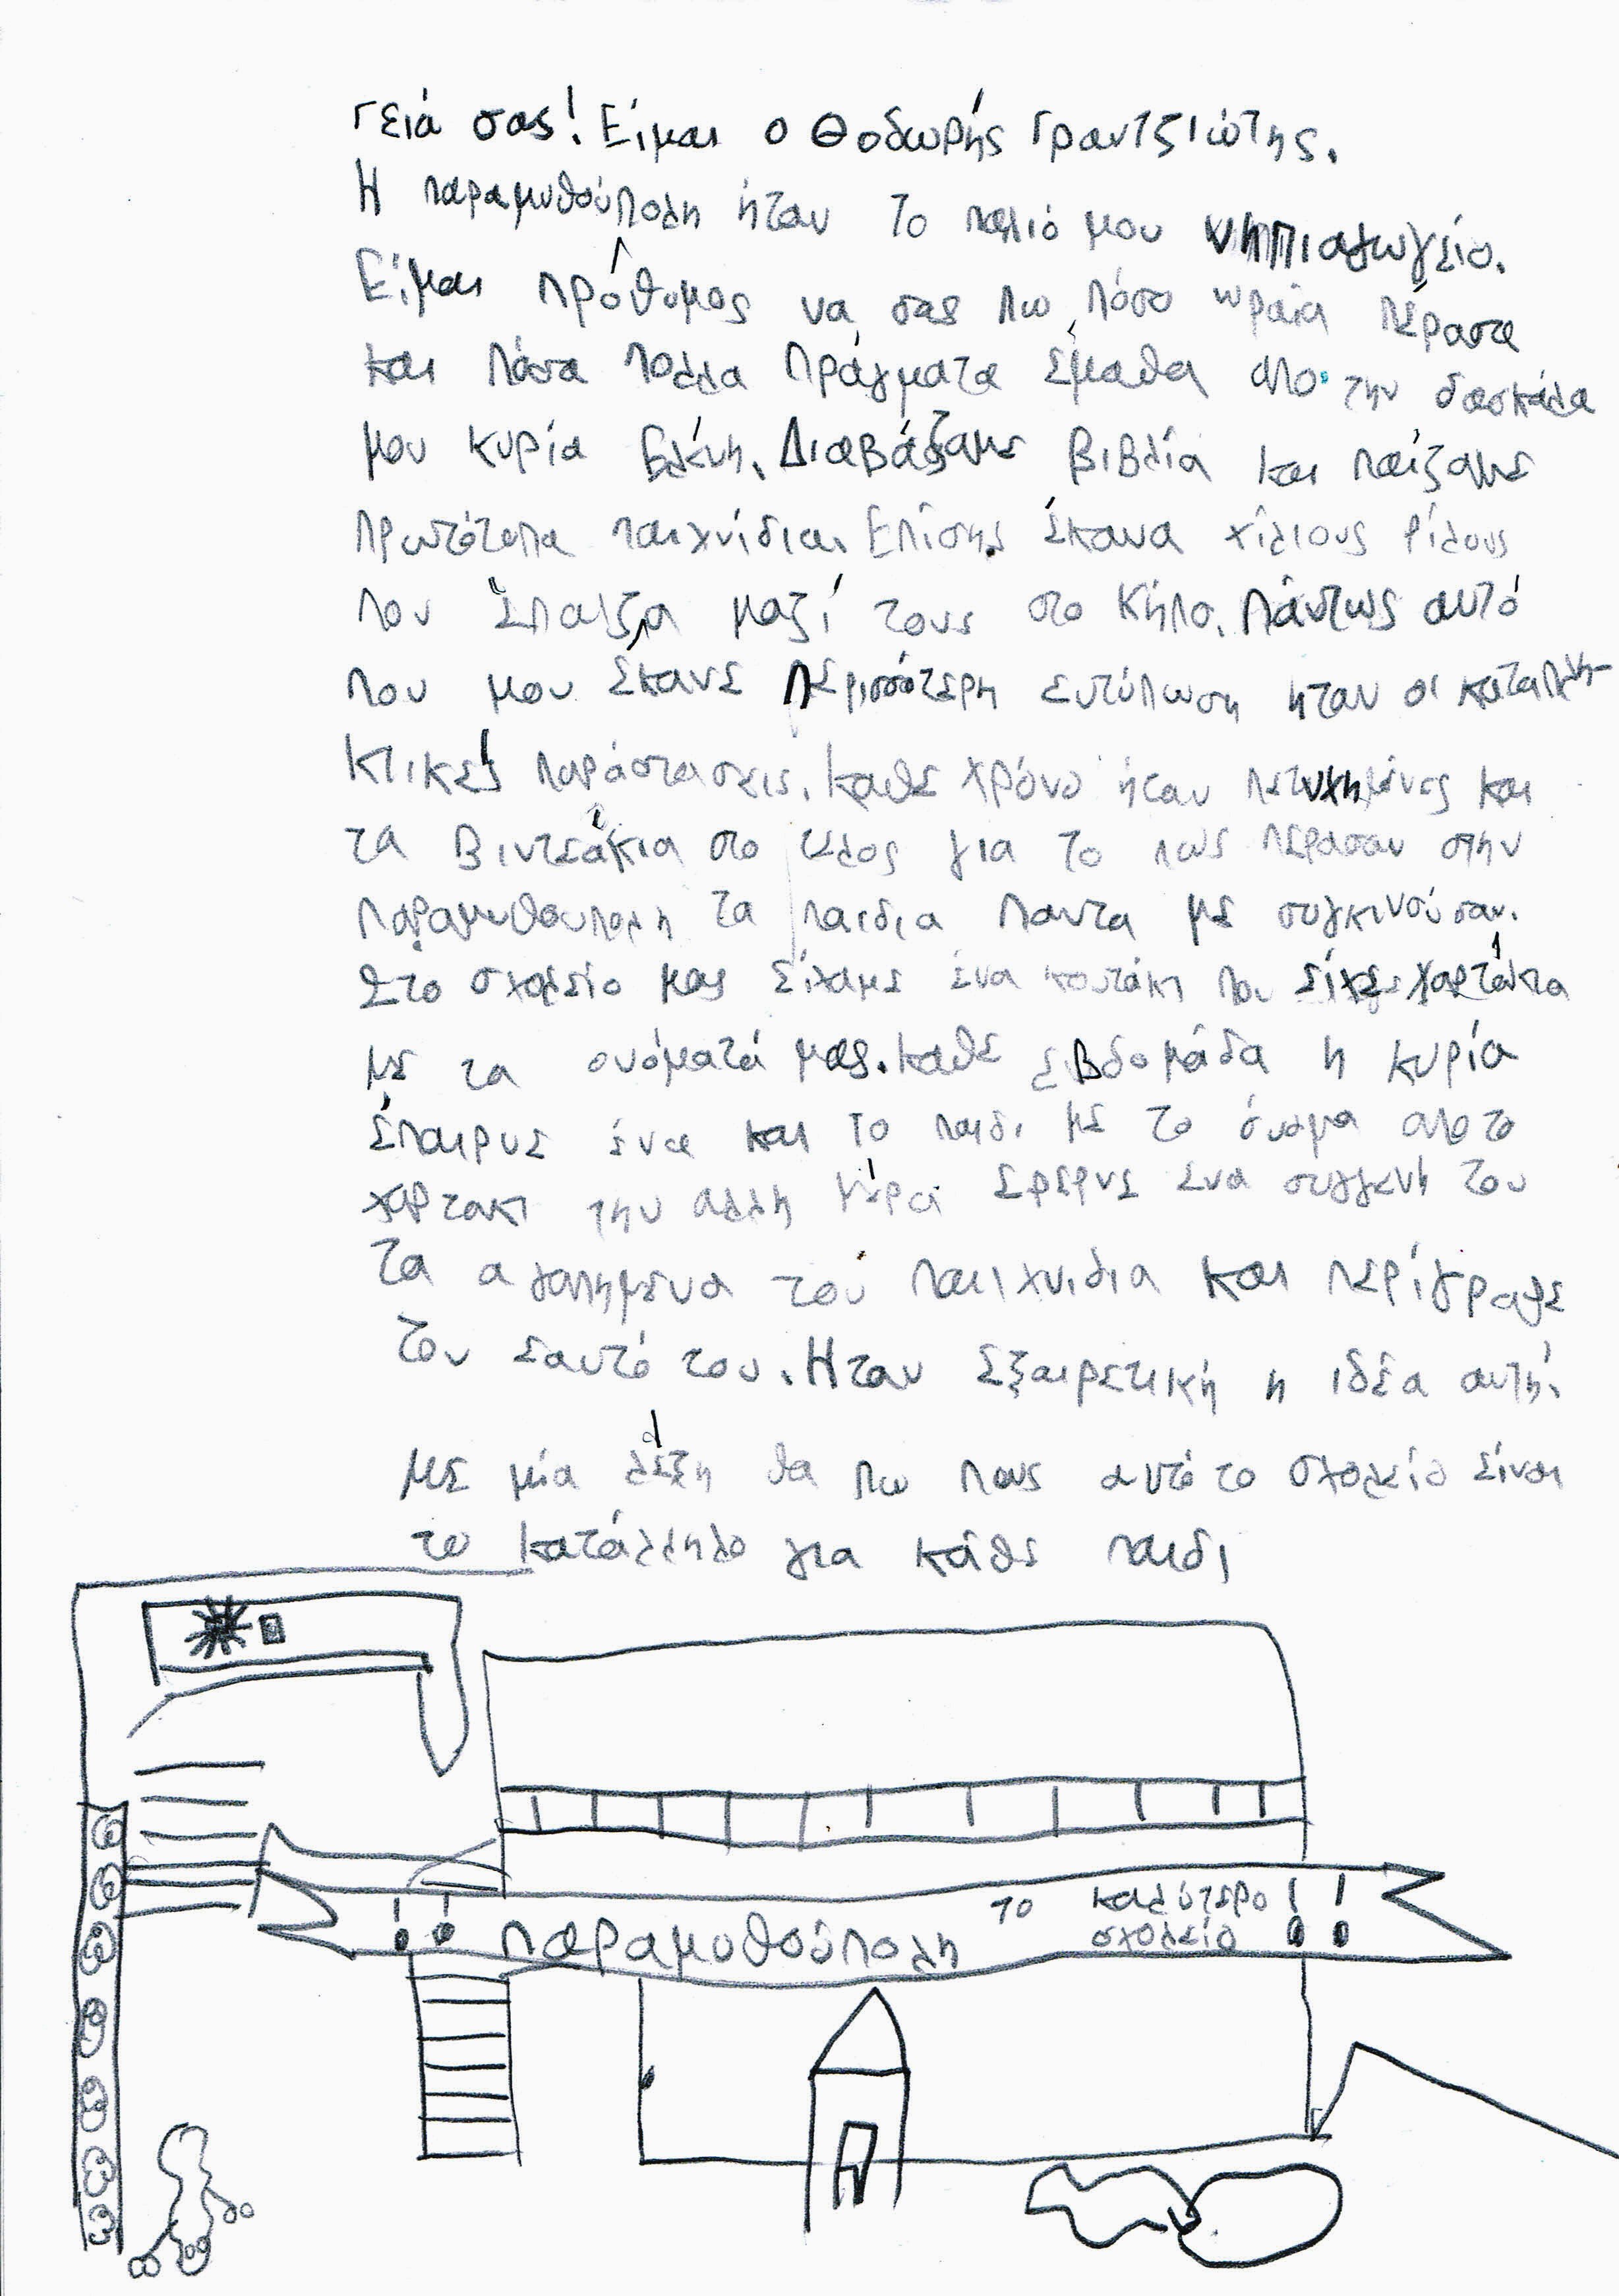 Γειά σας! Είμαι ο Θοδωρής Γραντζιώτης.
Η παραμυθούπολη ήταν το παλιό μου νηπιαγωγείο.
Είμαι πρόθυμος να σας πω πόσο ωραία πέρασα
και πόσα πολλα πράγματα έμαθα απο την δασκάλα
μου κυρία Ελένη. Διαβάζαμε βιβλία και παίζαμε
πρωτότυπα παιχνίδια. Επίσης έκανα χίλιους φίλους
που έπαιζα μαζί τους στο κήπο. Πάντως αυτό
που μου έκανε περισσότερη εντύπωση ηταν οι καταπλη-
κτικές παράστασεις. καθε χρόνο ήταν πετυχημένες και
τα βιντεάκια στο τελος για το πως περασαν στην
παραμυθουπολη τα παιδια παντα με συγκινούσαν.
Στο σχολείο μας είχαμε ένα κουτάκι που είχε χαρτάκια
με τα ονόματά μας. καθε εβδομάδα η κυρία
έπαιρνε ένα και το παιδι με το όνομα απο το
χαρτακι την αλλη μέρα εφερνε ενα συγγενή του
τα αγαπημενα του παιχνιδια και περίγραφε
τον εαυτό του. Ηταν εξαιρετική η ιδέα αυτή.
Με μία λέξη θα πω πως αυτό το σχολείο είναι
το κατάλληλο για κάθε παιδι
!! παραμυθούπολη το καλύτερο σχολείο !!